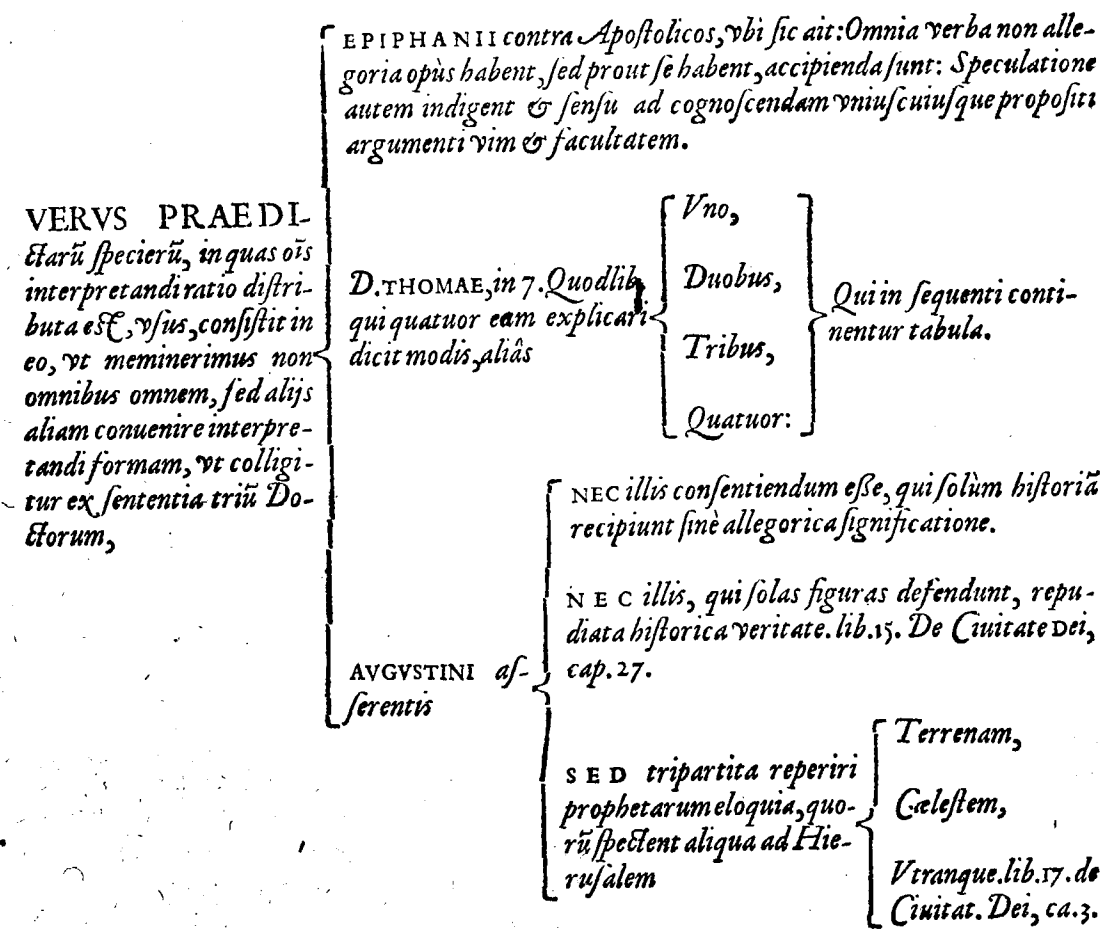 VERVS PRAEDI-
ctarũ ſpecierũ, in quas oĩs
interpretandi ratio diſtri-
buta eſt, vſus, conſiſtit in
eo, vt meminerimus non
omnibus omnem, ſed alijs
aliam conuenire interpre-
tandi formam, vt colligi-
tur ex ſententia triũ Do-
ctorum,
EPIPHANII contra Apoſtolicos, vbi ſic ait: Omnia verba non alle-
goria opùs habent, ſed prout ſe habent, accipienda ſunt: Speculatione
autem indigent & ſenſu ad cognoſcendam vniuſcuiuſque propoſiti
argumenti vim & facultatem.
D. THOMAE, in 7. Quodlib.
qui quatuor eam explicari
dicit modis, aliâs
Vno,
Duobus,
Tribus,
Quatuor:
Qui in ſequenti conti-
nentur tabula.
AVGVSTINI aſ-
ſerentis
NEC illis conſentiendum eſſe, qui ſolùm hiſtoriã
recipiunt ſinè allegorica ſignificatione.
NEC illis, qui ſolas figuras defendunt, repu-
diata hiſtorica veritate. lib. 15. De Ciuitate Dei,
cap. 27.
SED tripartita reperiri
prophetarum eloquia, quo-
rũ ſpectent aliqua ad Hie-
ruſalem
Terrenam,
Cæleſtem,
Vtranque. lib. 17. de
Ciuitat. Dei, ca. 3.